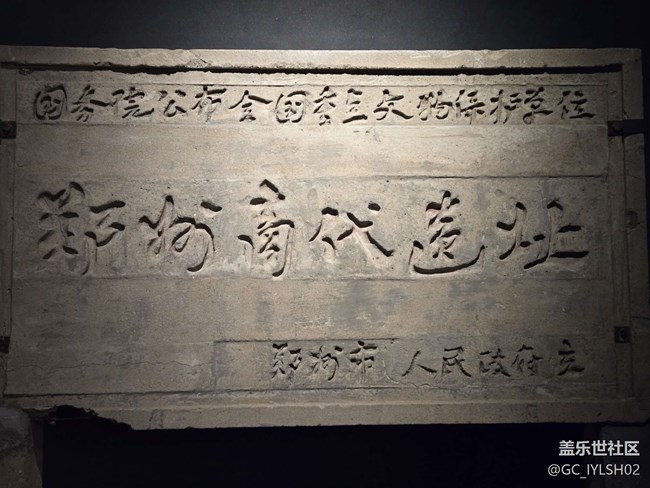 国务院公布全国重点文物保护单位
郑州商代遗址
郑州市人民政府立
盖乐世社区
@GC_IYLSH02